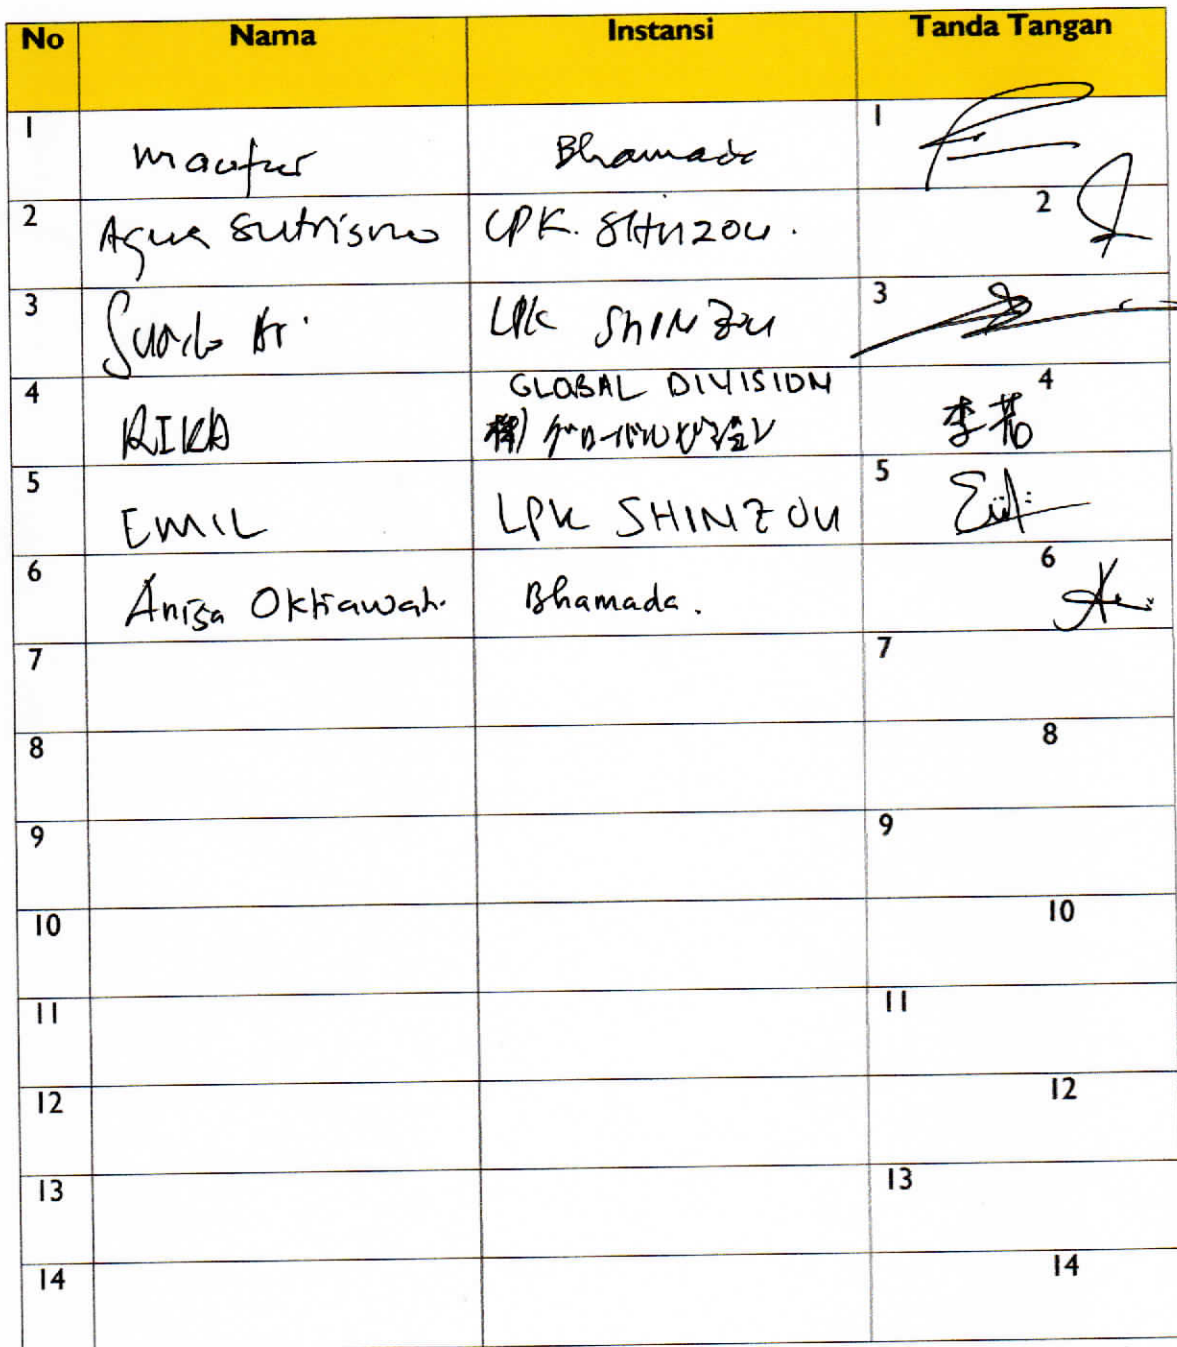 No Nama Instansi Tanda Tangan
1 Maufur Bhamada 1
2 Agus Sutrisno LPK. SHINZOU. 2
3 LPK SHINZOU 3
GLOBAL DIVISION
4 RIKA 4
5 EMIL LPK SHINZOU 5
6 Anisa Oktiawati Bhamada. 6
7 7
8 8
9 9
10 10
11 11
12 12
13 13
14 14